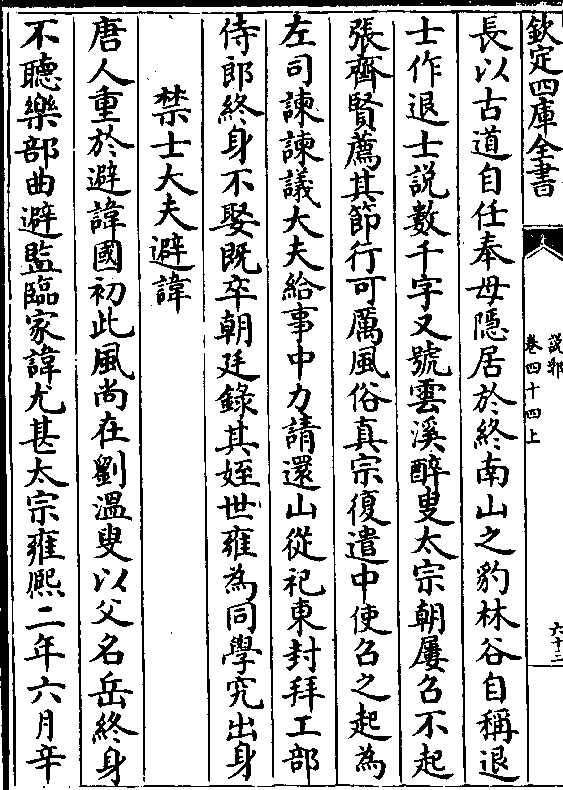 欽定四庫全書
說郛
卷四十四上
六十三
長以古道自任奉母隱居於終南山之豹林谷自稱退
士作退士說數千字又號雲溪醉叟太宗朝屢召不起
張齊賢薦其節行可厲風俗真宗復遣中使召之起為
左司諫諫議大夫給事中力請還山從祀東封拜工部
侍郎終身不娶既卒朝廷錄其姪世雍為同學究出身
禁士大夫避諱
唐人重於避諱國初此風尚在劉溫叟以父名岳終身
不聽樂部曲避監臨家諱尤甚太宗雍熙二年六月辛